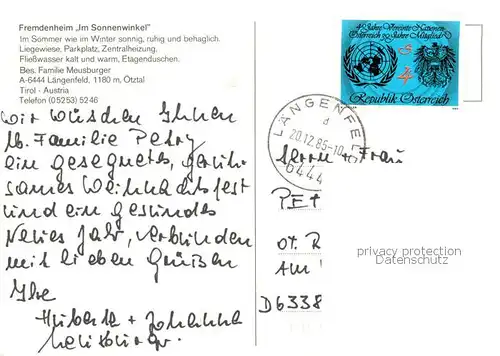 Fremdenheim „Im Sonnenwinkel"
Im Sommer wie im Winter sonnig, ruhig und behaglich.
Liegewiese, Parkplatz, Zentralheizung,
Fließwasser kalt und warm, Etagenduschen.
Bes. Familie Meusburger
A-6444 Längenfeld, 1180 m, Ötztal
Tirol · Austria
Telefon (05253) 5246
Wir wünschen Ihnen
lb. Familie Petry
ein gesegnetes, geruh
sames Weihnachtsfest
und ein gesundes
Neues Jahr, verbunden
mit lieben Grüßen
Ihre
Huberta + Johanna
Meusburger
40 Jahre Vereinte Nationen
Österreich 30 Jahre Mitglied
S 4
Republik Österreich
LÄNGENFELD
d
20.12.85-10
6444
Herrn + Frau
PET
OT. R
Am
D 6338
privacy protection
Datenschutz